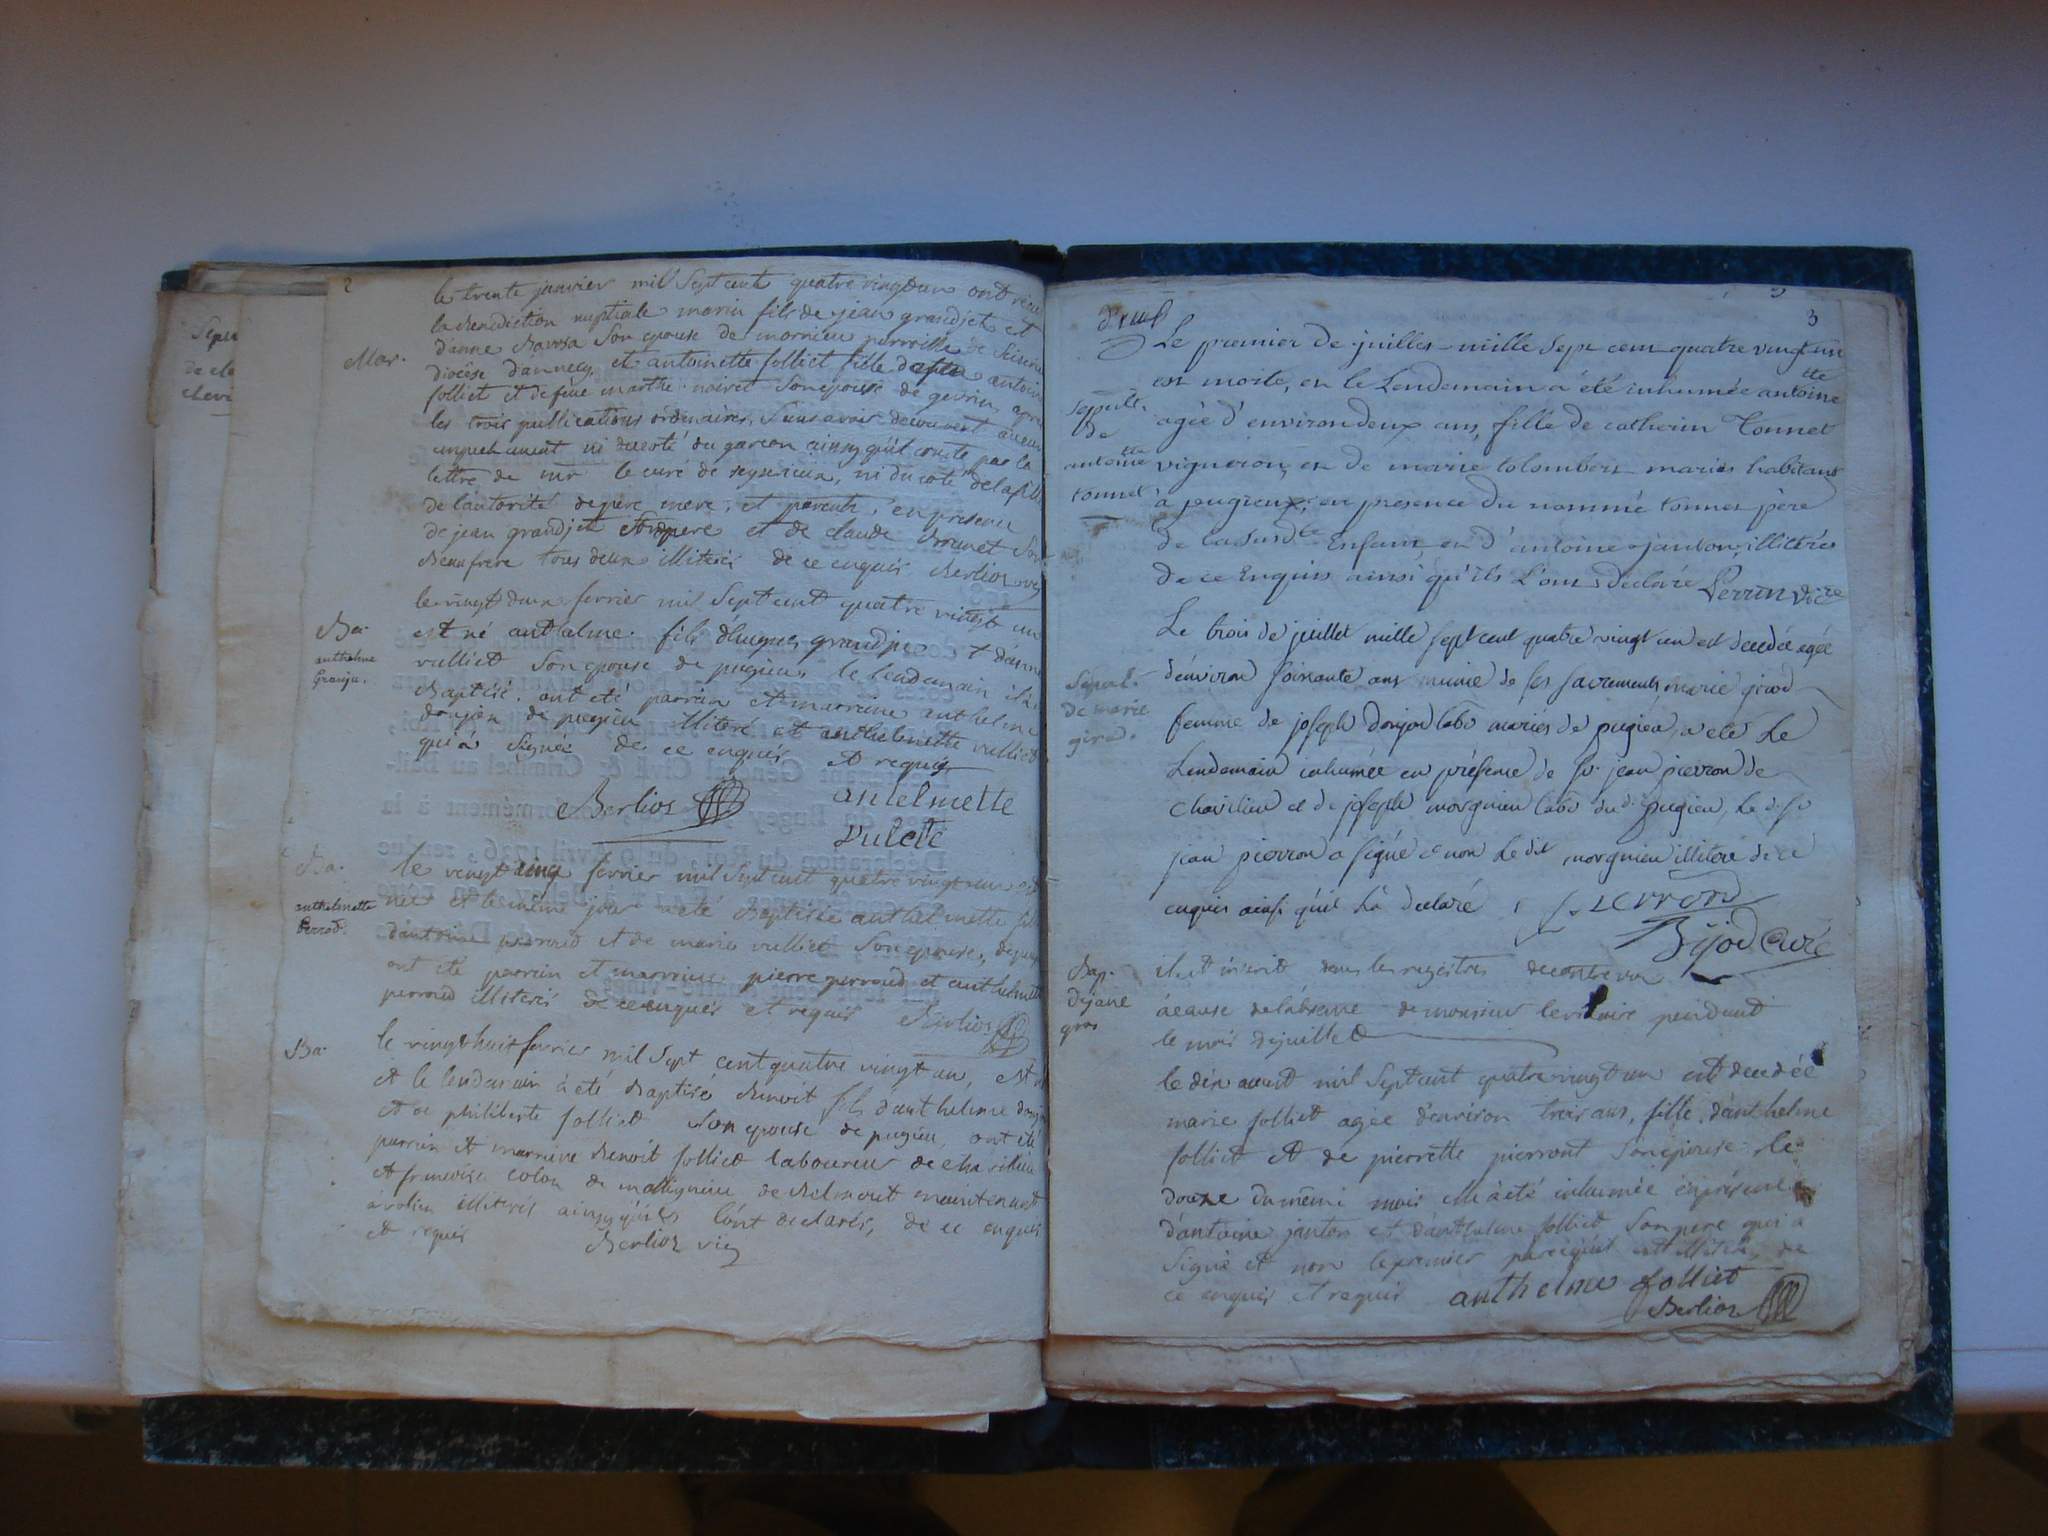 2
le trente janvier mil Sept cent quatre vingt un ont reçu
la Benediction nuptiale marin fils de jean grandjet et
d'anne Son epouse de
Mar.
diocèse d'annecy, et antoinette folliet fille antoine
folliet et de feue marthe noiret Son epouse de gevrin, après
les trois publications ordinaires, Sans avoir decouvert aucun
empechement ni du coté du garcon ainsy qu'il conste par la
lettre de mr le curé de seyserieux, ni du coté de la fille
de l'autorité de pere mere, et parents, en presence
de jean grandjet pere et de claude Brunet Son
Beaufrere tous deux illiterés de ce enquis Berlioz vic
le vingt deux fevrier mil Sept cent quatre vingt un
Ba.
anthelme
Granju.
est né anthelme fils d'hugues grandjet et d'anne
vulliet Son epouse de pugieu, le lendemain il a
Baptisé. ont eté parrain et marraine anthelme
donjon de pugieu illiteré et anthelmette vulliet
qui a Signée de ce enquis et requis
Berlios antelmette
vulete
Ba.
anthelmette
Perrod.
le vingt cinq fevrier mil Sept cent quatre vingt un est
née et le même jour a eté Baptisée anthelmette fille
d'antoine perroud et de marie vulliet Son epouse, de pugieu
ont eté parrain et marraine pierre perroud et anthelmette
perroud illiterés de ce enquis et requis Berlios
Ba.
le vingt huit fevrier mil Sept cent quatre vingt un, est né
et le lendemain à eté Baptisé Benoit fils d'anthelme donjon
et de philiberte folliet Son epouse de pugieu, ont eté
parrain et marraine Benoit folliet laboureur de chavilieu
et francoise colon de massignieu de Belmont maintenant
à volien illiterés ainsy qu'ils l'ônt declarés, de ce enquis
et requis Berlioz vic
3
Le premier de juilles mille Sept cent quatre vingt un
est morte, et le Lendemain a été inhumée antoinette
Sepult.
de
antoinette
tonnet
agée d'environ deux ans, fille de catherin Tonnet
vigneron, et de marie Colombet mariés habitans
à peugieux, en presence du nommé tonnet père
de la susdte Enfant, et d'antoine janton, illittérés
de ce Enquis ainsi qu'ils L'ont déclaré Perrin vicre
Le trois de juillet mille sept cent quatre vingt un est decedée agée
Sepul.
de marie
girod.
d'environ soixante ans munie de ses sacrements marie girod
femme de joseph donjon labr mariés de pugieu, a eté Le
Lendemain inhumée en présence de sr jean pierron de
chavilieu et de joseph morgnieu labr du dt pugieu, le dt sr
jean pierron a signé et non Le dit morgnieu illiteré de ce
enquis ainsi qu'il L'a declaré j. pierron
Bijod Curé
Bap.
de jane
gros
il est inscrit dans les registres de contrevoz
à cause de l'absence de monsieur le vicaire pendant
le mois de juillet
le dix aoust mil Sept cent quatre vingt un est decedée
marie folliet agée d'environ trois ans, fille d'anthelme
folliet et de pierrette pierront Son epouse le
douze du même mois elle à eté inhumée en présence
d'antoine janton et d'anthelme folliet Son pere qui a
Signé et non le premier parcequ'il est illiteré, de
ce enquis et requis anthelme folliet
Berlioz